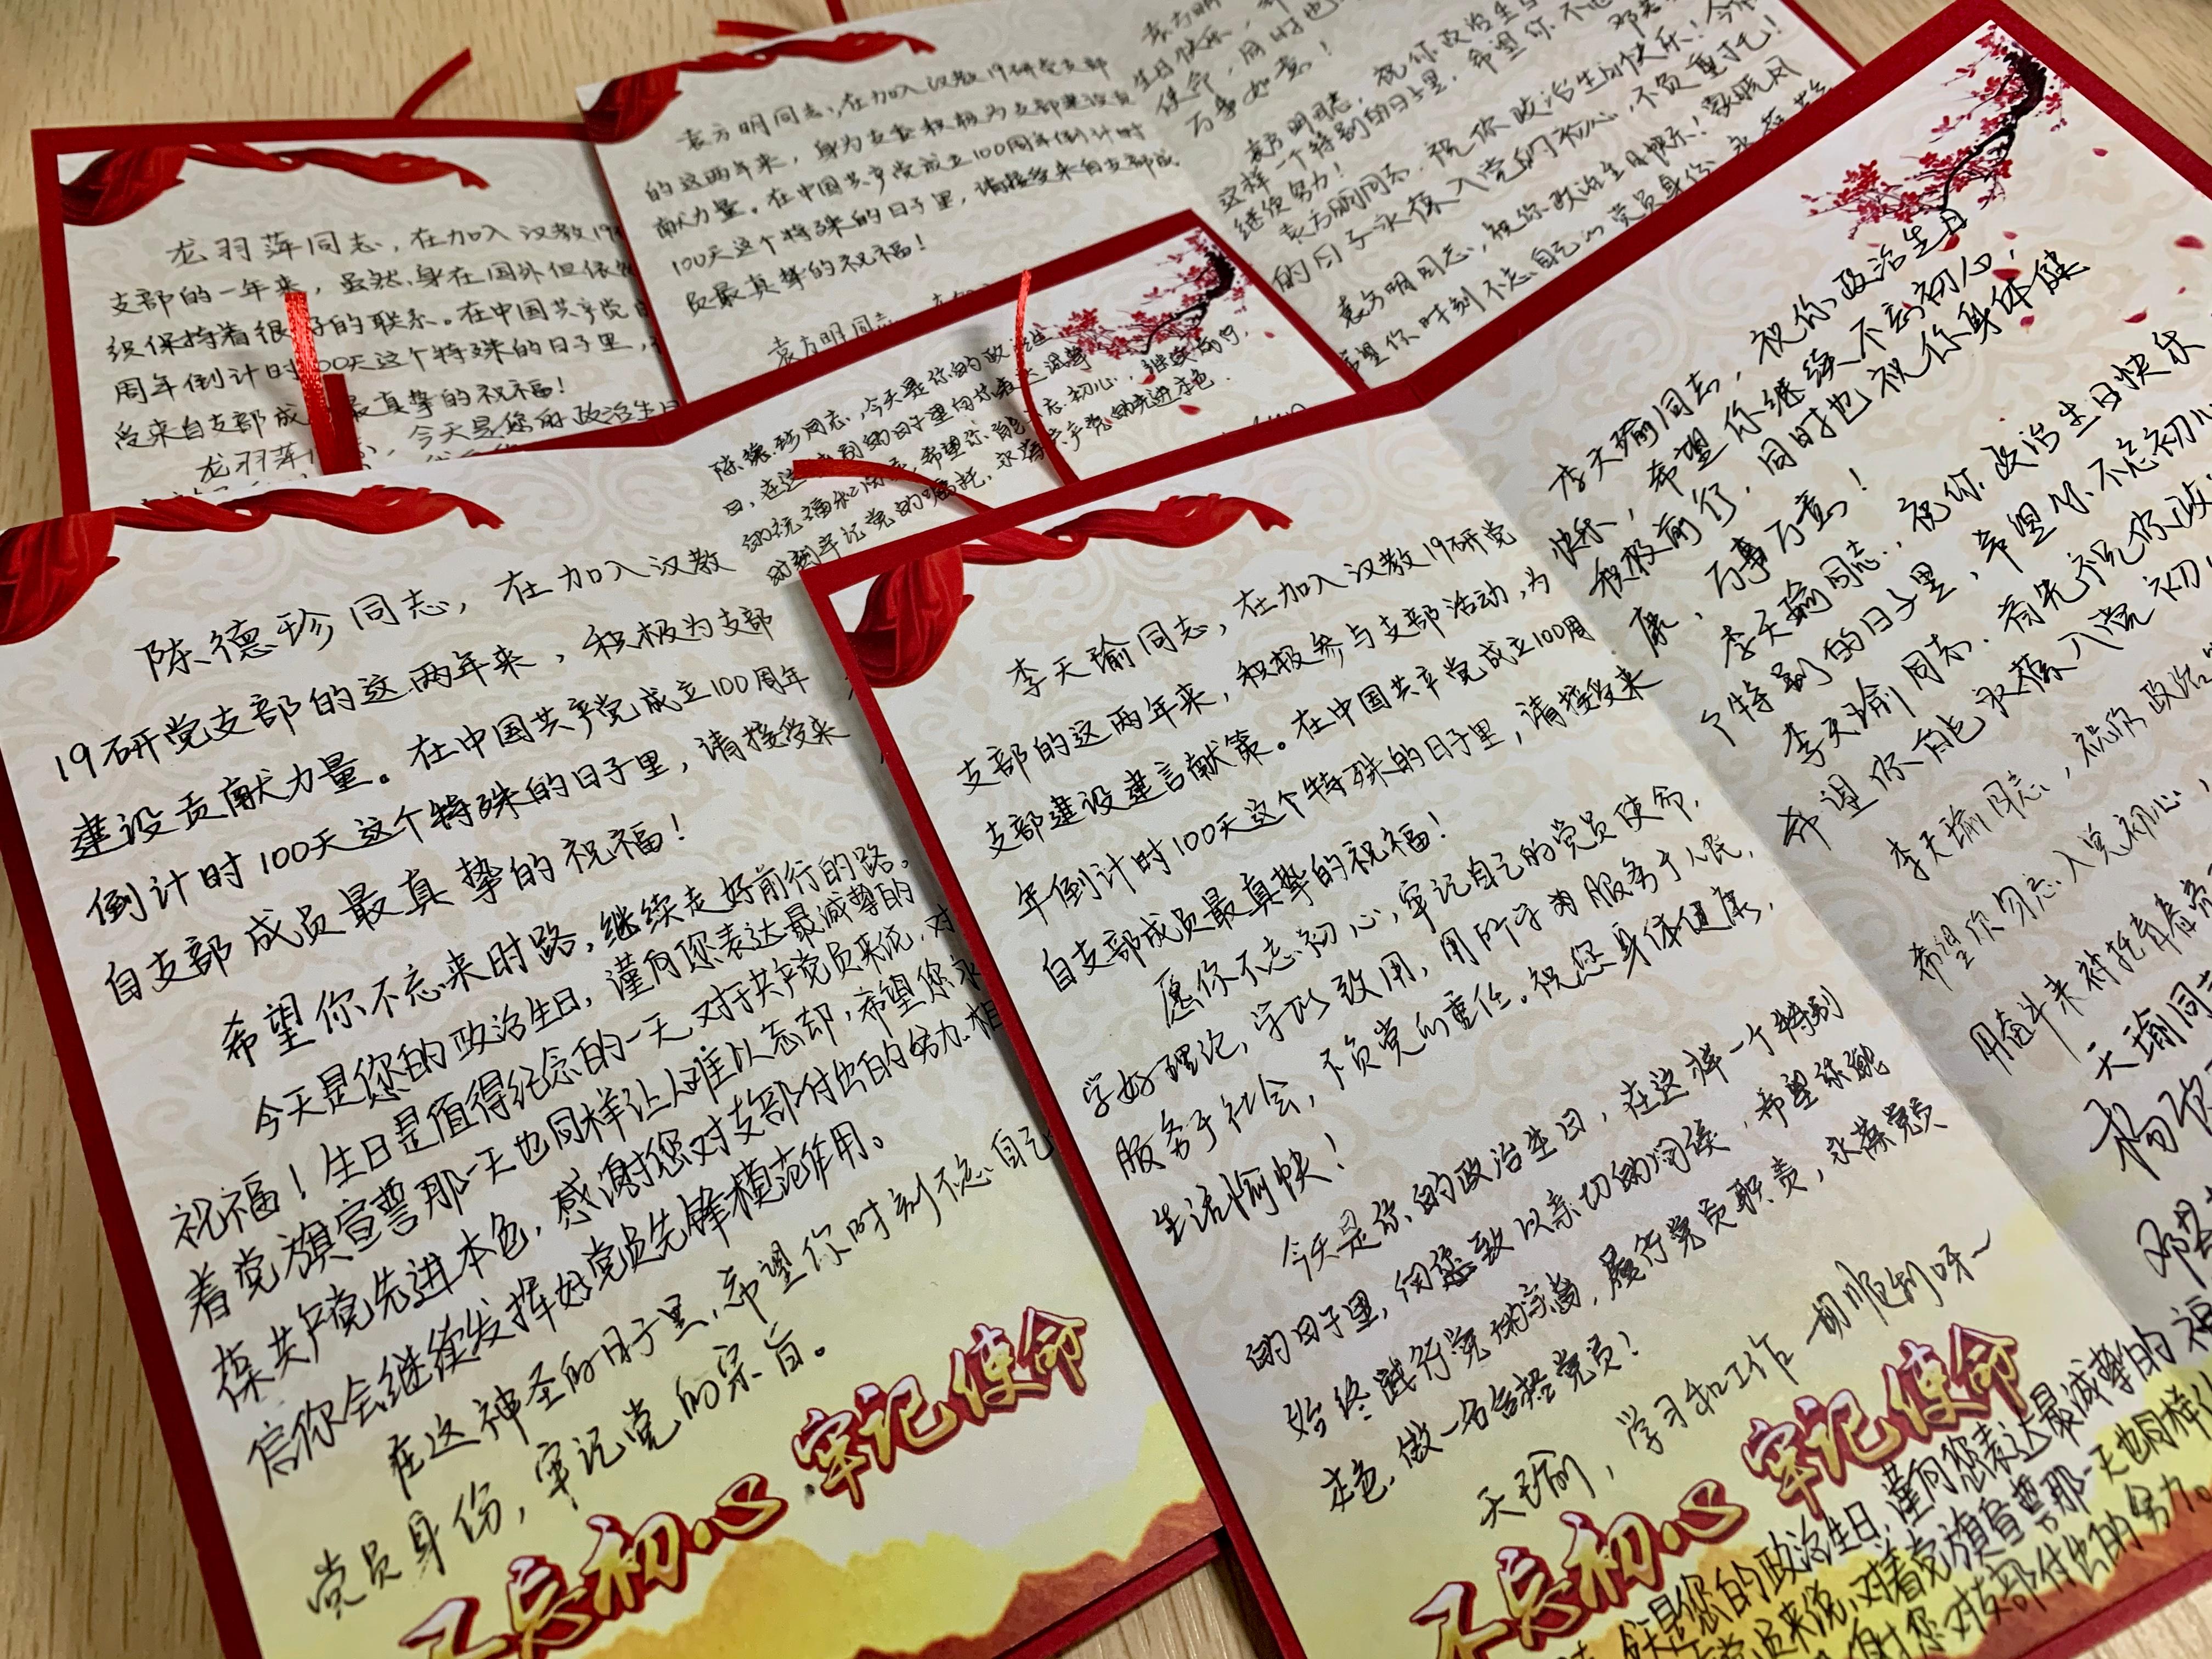 龙羽萍同志，在加入汉教19
支部的一年来，虽然身在国外但依然
织保持着很好的联系。在中国共产党
周年倒计时100天这个特殊的日子里，
受来自支部成 最真挚的祝福！
龙羽萍 今天是您的政治生日
袁方明同志，在加入汉教19研党支部
的这两年来，身为支委积极为支部建设贡
献力量。在中国共产党成立100周年倒计时
100天这个特殊的日子里，请接受来自支部成
员最真挚的祝福！
袁方明同志
生日快乐，
使命，同时也
万事如意！
袁方明同志，祝你政治生日
这样一个特别的日子里，希望你不忘
继续努力！
袁方明同志，祝你政治生日快乐！
的日子永葆入党的初心，不负重托！
袁方明同志，祝你政治生日快乐！
希望你时刻不忘自己的党员身份
陈德珍同志，今天是你的政治生
日，在这 别的日子里向你表达诚挚
的祝福和 希望你能不忘初心，继续前行，
时刻牢记党的嘱托，永葆共产党的先进本色。
陈德珍同志，在加入汉教
19研党支部的这两年来，积极为支部
建设贡献力量。在中国共产党成立100周年
倒计时100天这个特殊的日子里，请接受来
自支部成员最真挚的祝福！
希望你不忘来时路，继续走好前行的路。
今天是您的政治生日，谨向您表达最诚挚的
祝福！生日是值得纪念的一天，对于共产党员来说，对
着党旗宣誓那一天也同样让人难以忘却，希望您永
葆共产党先进本色，感谢您对支部付出的努力，相
信你会继续发挥好党员先锋模范作用。
在这神圣的日子里，希望你时刻不忘自己
党员身份，牢记党的宗旨。
不忘初心 牢记使命
李天瑜同志，在加入汉教19研党
支部的这两年来，积极参与支部活动，为
支部建设建言献策。在中国共产党成立100周
年倒计时100天这个特殊的日子里，请接受来
自支部成员最真挚的祝福！
愿你不忘初心，牢记自己的党员使命，
学好理论，学以致用，用所学为服务于人民，
服务于社会，不负党的重任。祝您身体健康，
生活愉快！
今天是你的政治生日，在这样一个特别
的日子里，向您致以亲切的问候，希望你能
始终践行党的宗旨，履行党员职责，永葆党员
本色，做一名合格党员！
天瑜，学习和工作一切顺利呀~
不忘初心 牢记使命
今天是您的政治生日，谨向您表达最诚挚的祝
党员来说，对着党旗宣誓那一天也同样
谢您对支部付出的努力。
李天瑜同志，祝你政治生日
快乐，希望你继续不忘初心，
积极前行，同时也祝你身体健
康，万事如意！
李天瑜同志，祝你政治生日快乐
个特别的日子里，希望你不忘初心
李天瑜同志，首先祝你政
希望你能永葆入党初
李天瑜同志，祝你政治
希望你勿忘入党初心，
用奋斗来衬托青春
天瑜同志